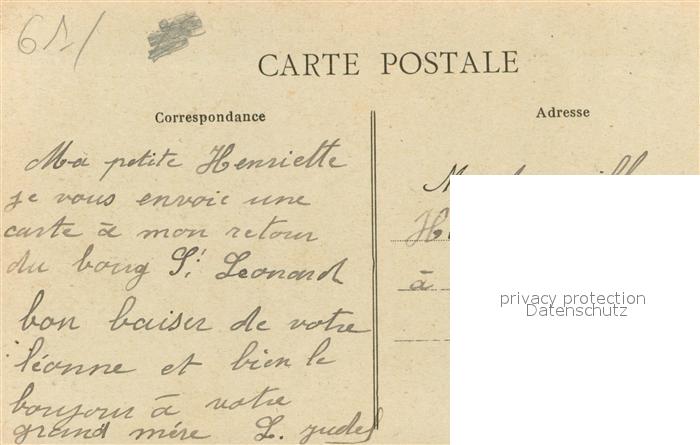 61/
CARTE POSTALE
Correspondance
Adresse
Ma petite Henriette
je vous envoie une
carte à mon retour
du bourg St Leonard
bon baiser de votre
léonne et bien le
boujour à votre
grand mére L.
à
privacy protection
Datenschutz